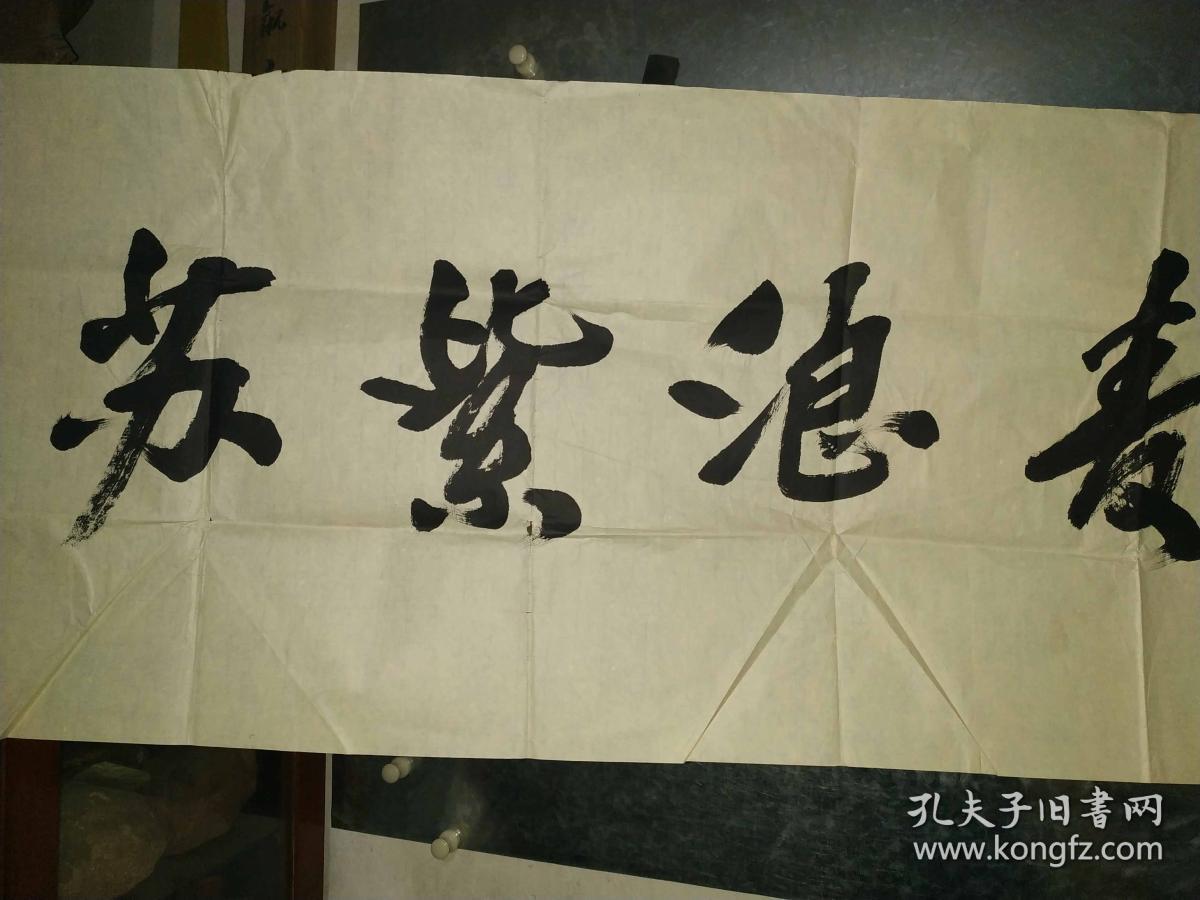 浪紫苏
孔夫子旧書网
www.kongfz.com